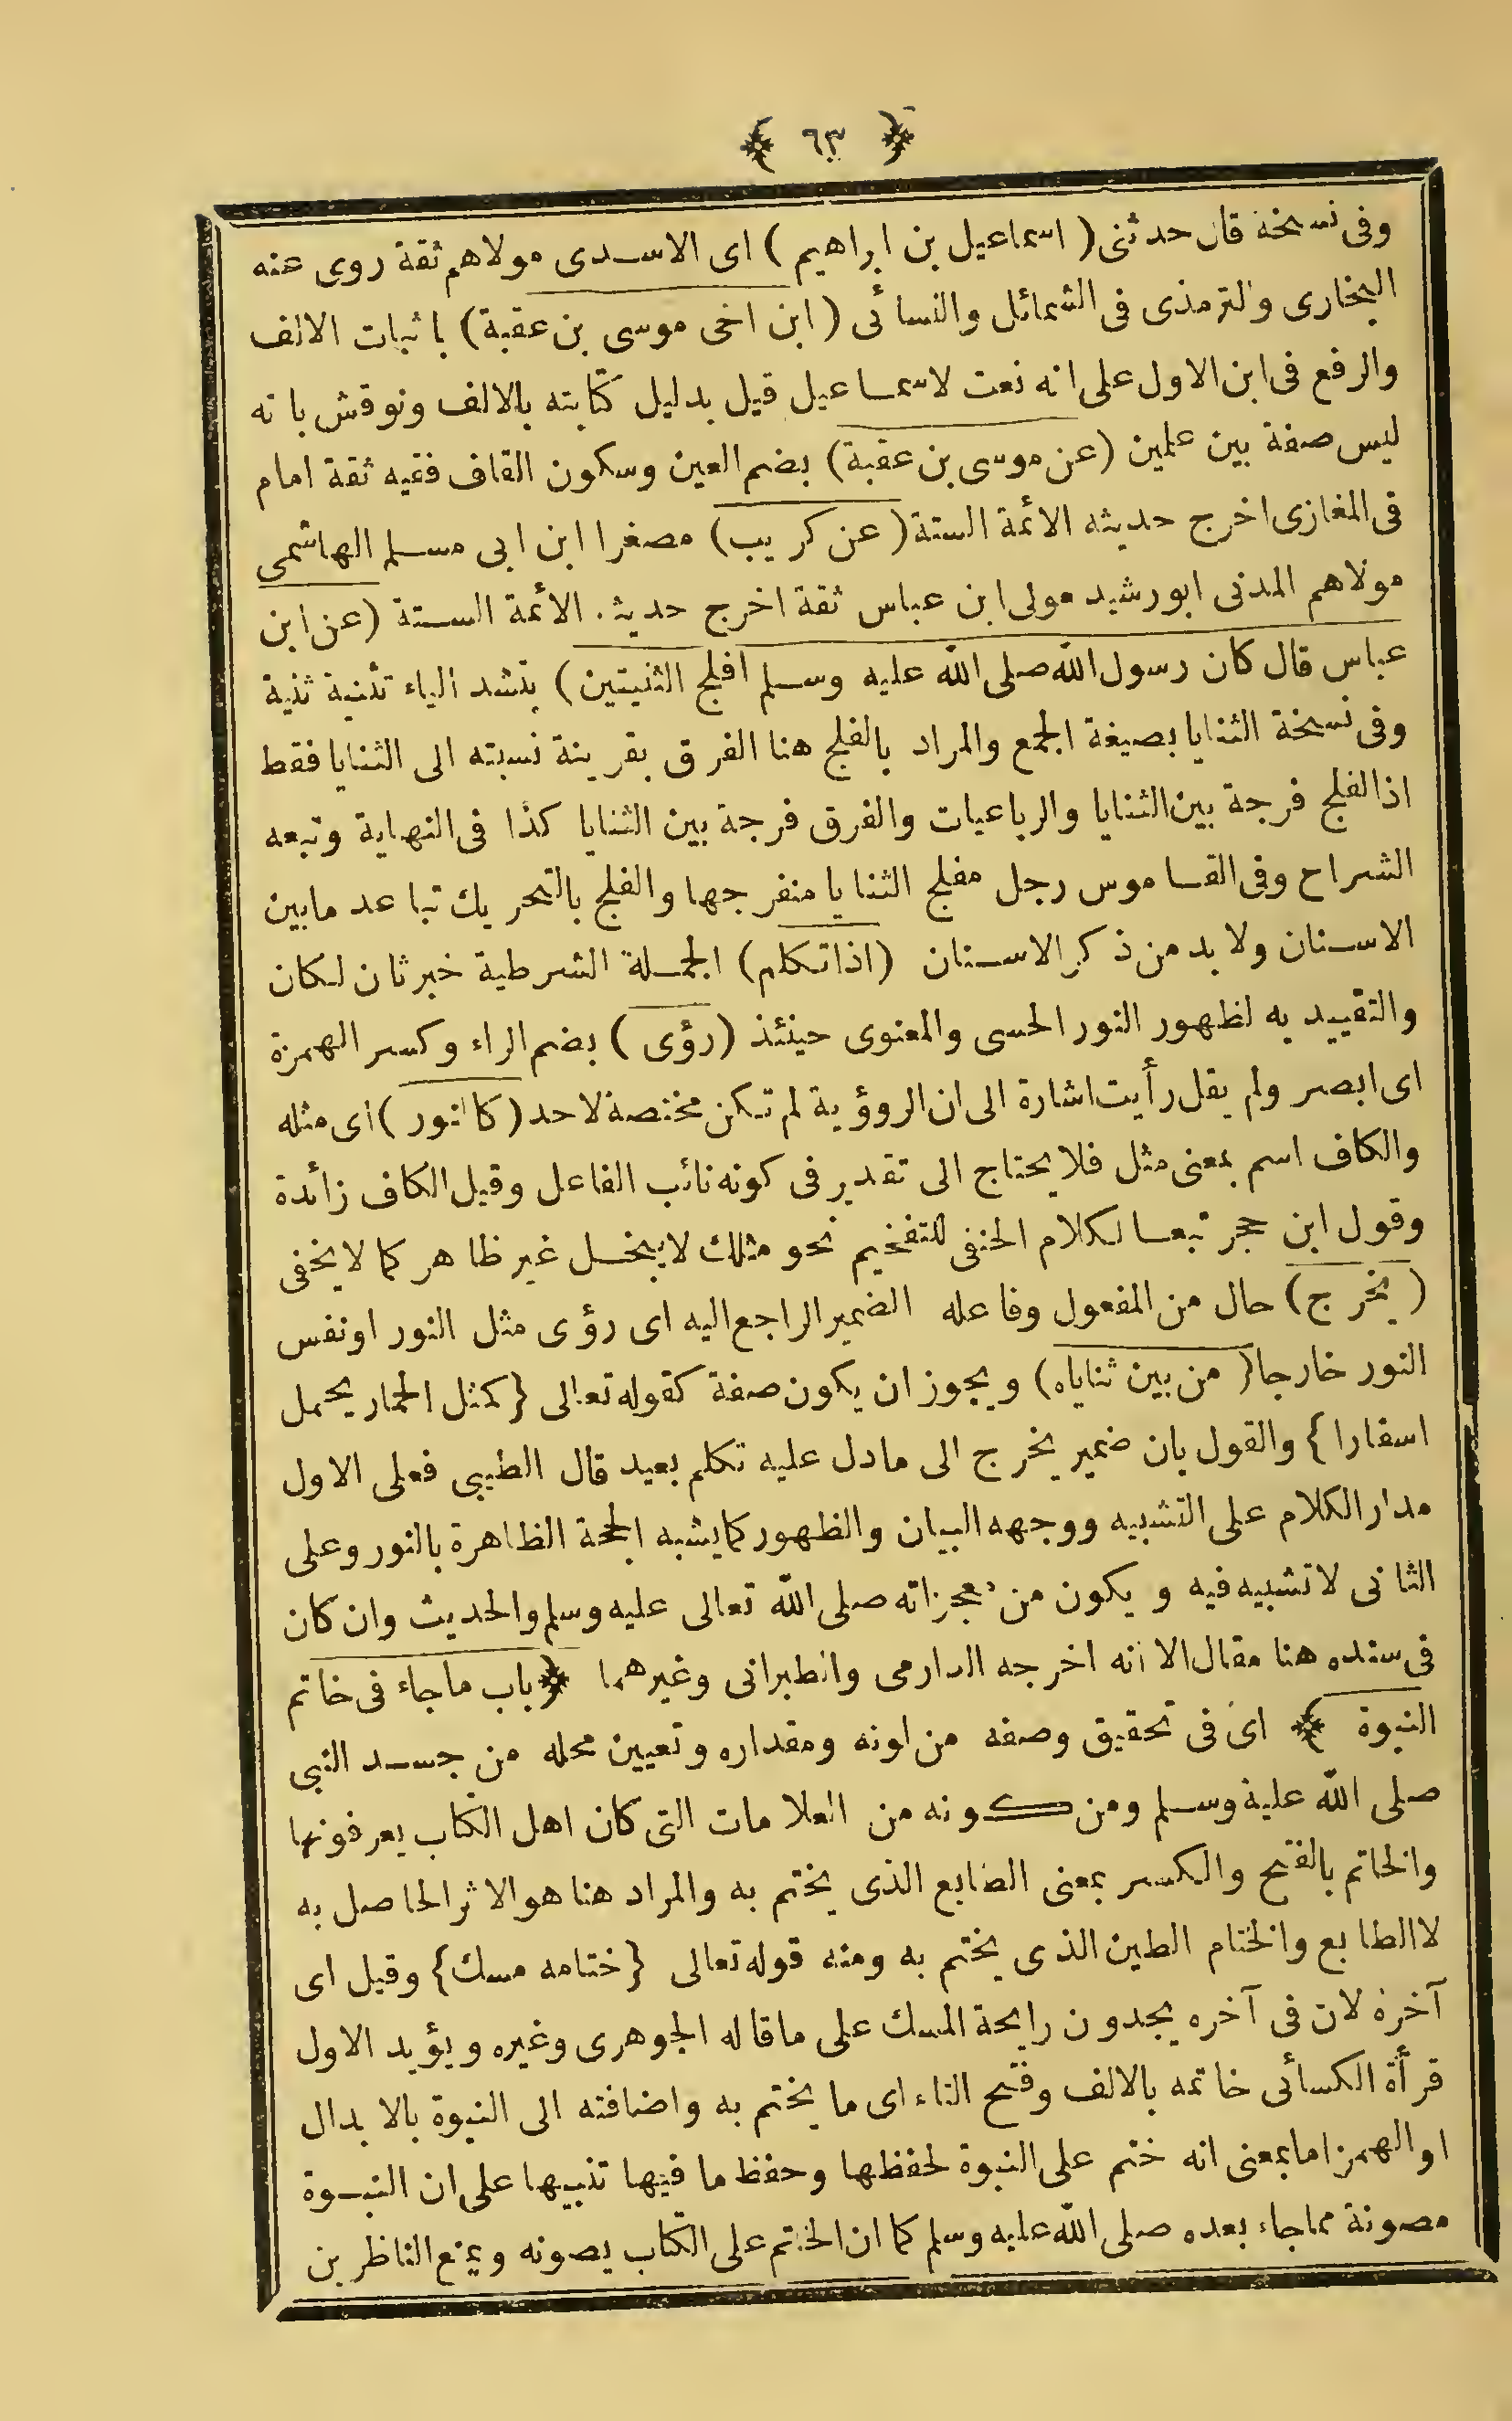 ﴿ ٦٣ ﴾
وفى نسخة قال حدثنى ( اسماعيل بن ابراهيم ) اى الاسدى مولاهم ثقة روى عنه
البخارى والترمذى فى الشمائل والنسائى ( ابن اخى موسى بن عقبة ) باثبات الالف
والرفع فى ابن الاول على انه نعت لاسماعيل قيل بدليل كتابته بالالف ونوقش بانه
ليس صفة بين علمين ( عن موسى بن عقبة ) بضم العين وسكون القاف فقيه ثقة امام
فى المغازى اخرج حديثه الائمة الستة ( عن كريب ) مصغرا ابن ابى مسلم الهاشمى
مولاهم المدنى ابورشيد مولى ابن عباس ثقة اخرج حديثه الائمة الستة ( عن ابن
عباس قال كان رسول الله صلى الله عليه وسلم افلج الثنيتين ) بتشد الياء تثنية ثنية
وفى نسخة الثنايا بصيغة الجمع والمراد بالفلج هنا الفرق بقرينة نسبته الى الثنايا فقط
اذ الفلج فرجة بين الثنايا والرباعيات والفرق فرجة بين الثنايا كذا فى النهاية وتبعه
الشراح وفى القاموس رجل مفلج الثنايا منفرجها والفلج بالتحريك تباعد مابين
الاسنان ولا بد من ذكر الاسنان ( اذا تكلم ) الجملة الشرطية خبر ثان لكان
والتقييد به لظهور النور الحسى والمعنوى حينئذ ( رؤى ) بضم الراء وكسر الهمزة
اى ابصر ولم يقل رأيت اشارة الى ان الروؤية لم تكن مختصة لاحد ( كالنور ) اى مثله
والكاف اسم بمعنى مثل فلا يحتاج الى تقدير فى كونه نائب الفاعل وقيل الكاف زائدة
وقول ابن حجر تبعا لكلام الحنفى للتفخيم نحو مثلك لا يبخل غير ظاهر كما لا يخفى
( يخرج ) حال من المفعول وفاعله الضمير الراجع اليه اى رؤى مثل النور اونفس
النور خارجا ( من بين ثناياه ) ويجوز ان يكون صفة كقوله تعالى { كمثل الحمار يحمل
اسفارا } والقول بان ضمير يخرج الى مادل عليه تكلم بعيد قال الطيبى فعلى الاول
مدار الكلام على التشبيه ووجهه البيان والظهور كما يشبه الحجة الظاهرة بالنور وعلى
الثانى لا تشبيه فيه ويكون من معجزاته صلى الله تعالى عليه وسلم والحديث وان كان
فى سنده هنا مقال الا انه اخرجه الدارمى والطبرانى وغيرهما ﴿ باب ماجاء فى خاتم
النبوة ﴾ اى فى تحقيق وصفه من لونه ومقداره وتعيين محله من جسد النبى
صلى الله عليه وسلم ومن كونه من العلامات التى كان اهل الكتاب يعرفونها
والخاتم بالفتح والكسر بمعنى الطابع الذى يختم به والمراد هنا هو الاثر الحاصل به
لا الطابع والختام الطين الذى يختم به ومنه قوله تعالى { ختامه مسك } وقيل اى
آخره لان فى آخره يجدون رايحة المسك على ماقاله الجوهرى وغيره ويؤيد الاول
قرأة الكسائى خاتمه بالالف وفتح التاء اى ما يختم به واضافته الى النبوة بالابدال
او الهمز اما بمعنى انه ختم على النبوة لحفظها وحفظ ما فيها تنبيها على ان النبوة
مصونة مماجاء بعده صلى الله عليه وسلم كما ان الختم على الكتاب يصونه ويمنع الناظرين